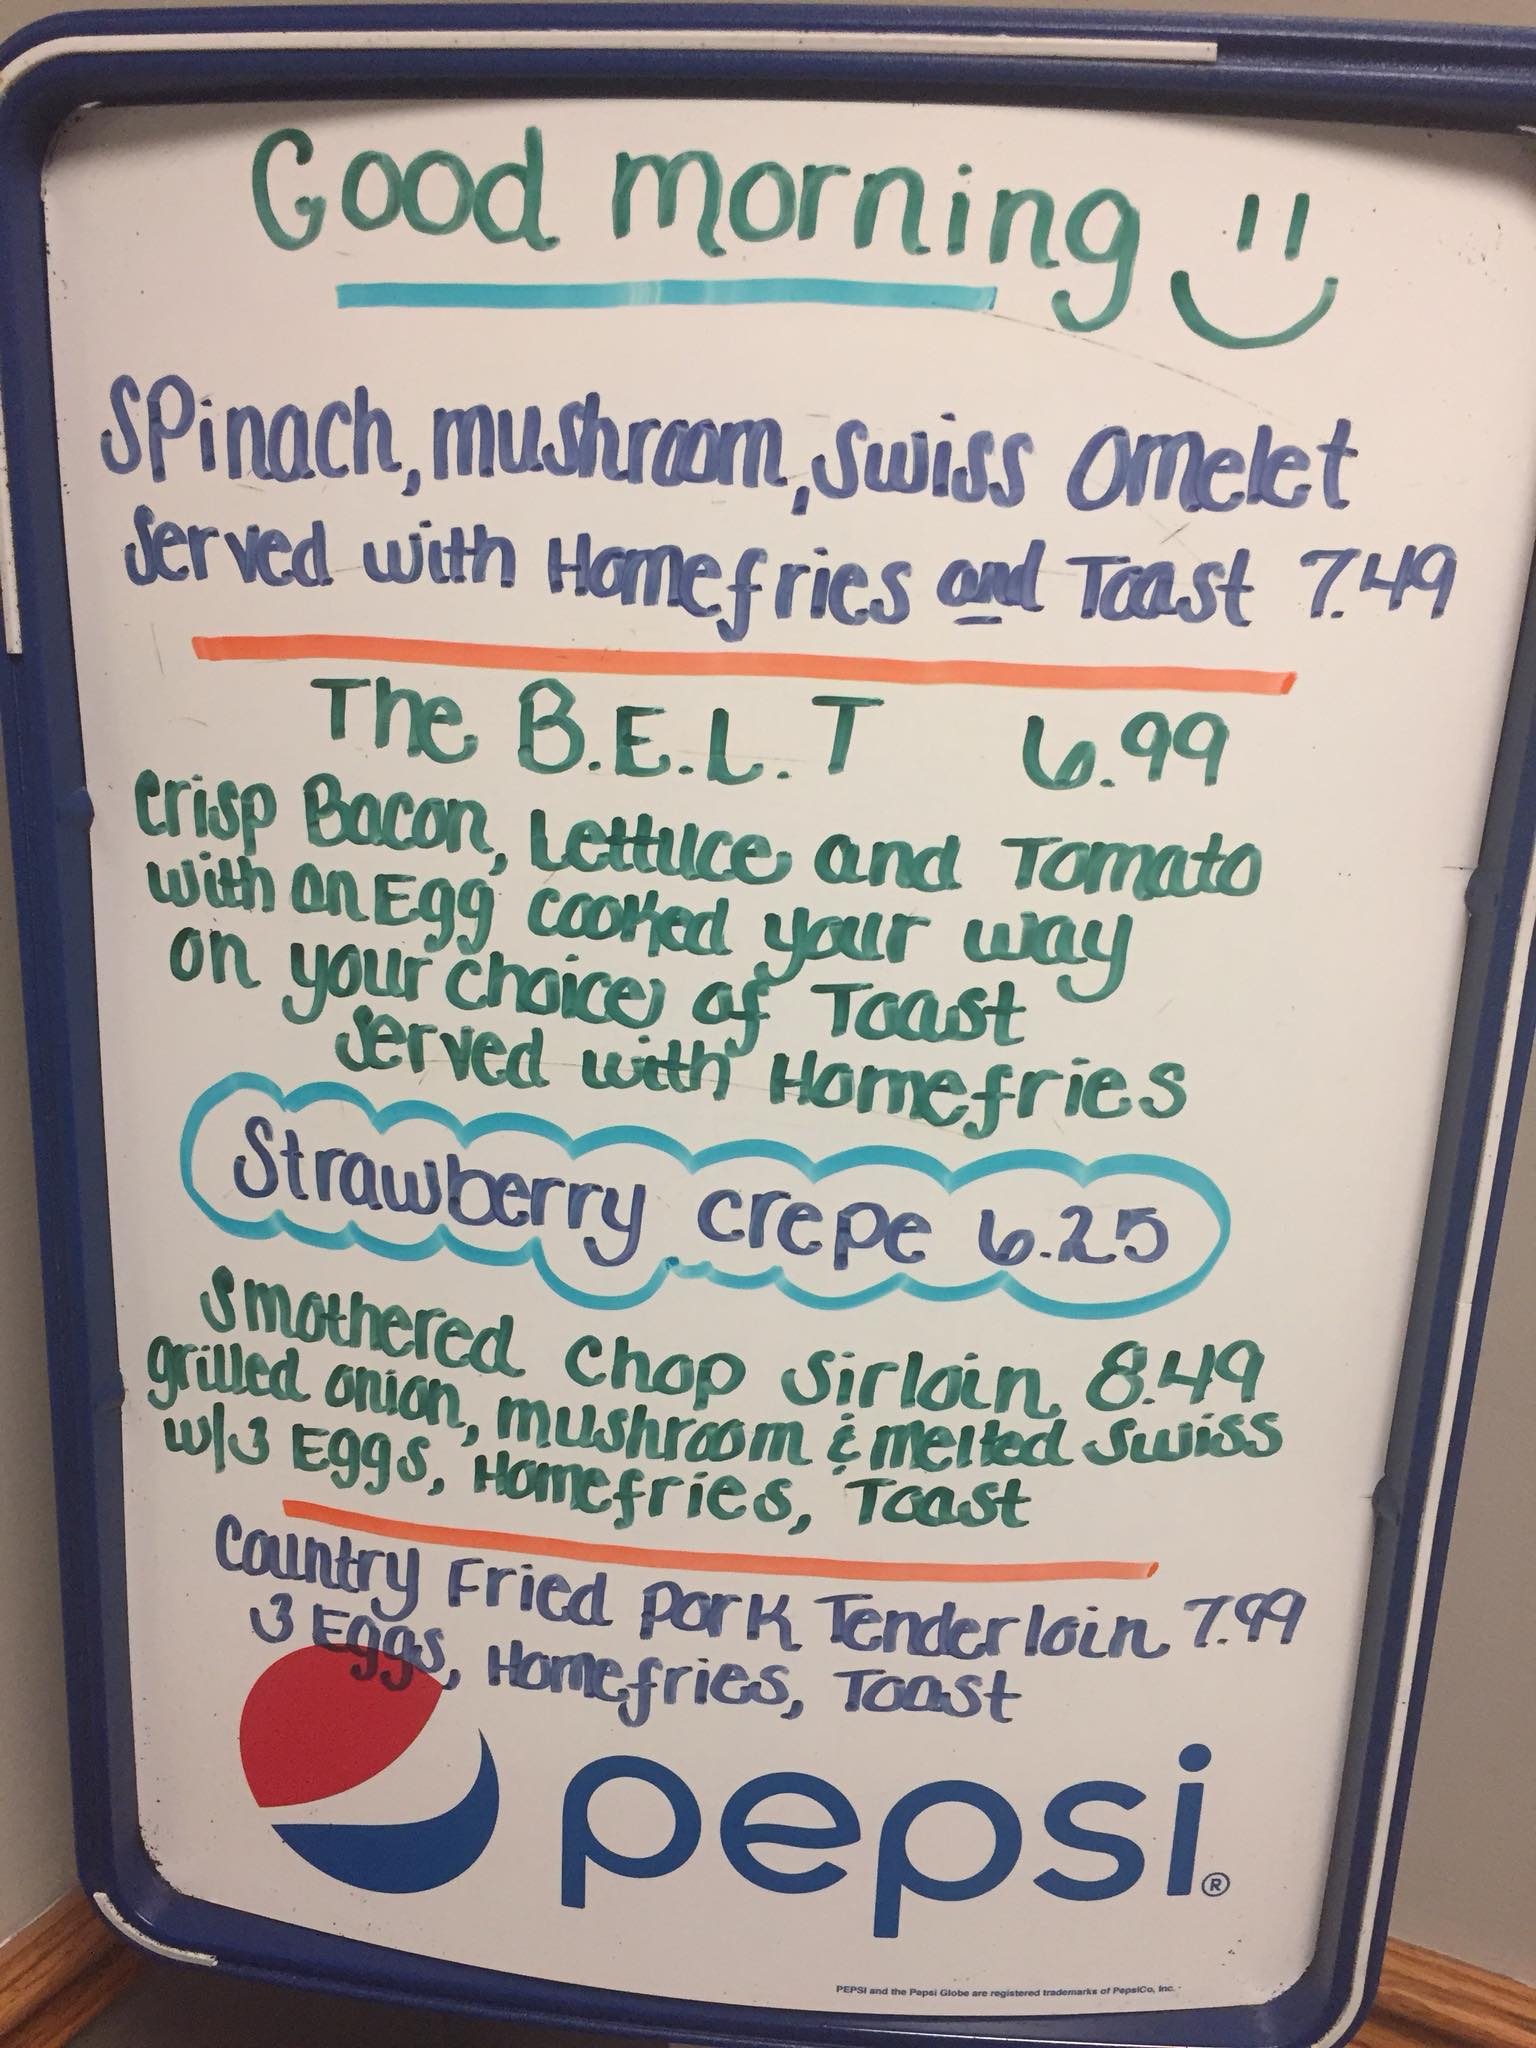 Good morning
Spinach, mushroom, Swiss Omelet
Served with Homefries and Toast 7.49
The B.E.L.T 6.99
Crisp Bacon, Lettuce and Tomato
with an Egg cooked your way
on your choice of Toast
Served with Homefries
Strawberry crepe 6.25
Smothered Chop Sirloin 8.49
grilled onion, mushroom & melted Swiss
w/3 Eggs, Homefries, Toast
Country Fried Pork Tenderloin 7.99
3 Eggs, Homefries, Toast
pepsi®
PEPSI and the Pepsi Globe are registered trademarks of PepsiCo, Inc.